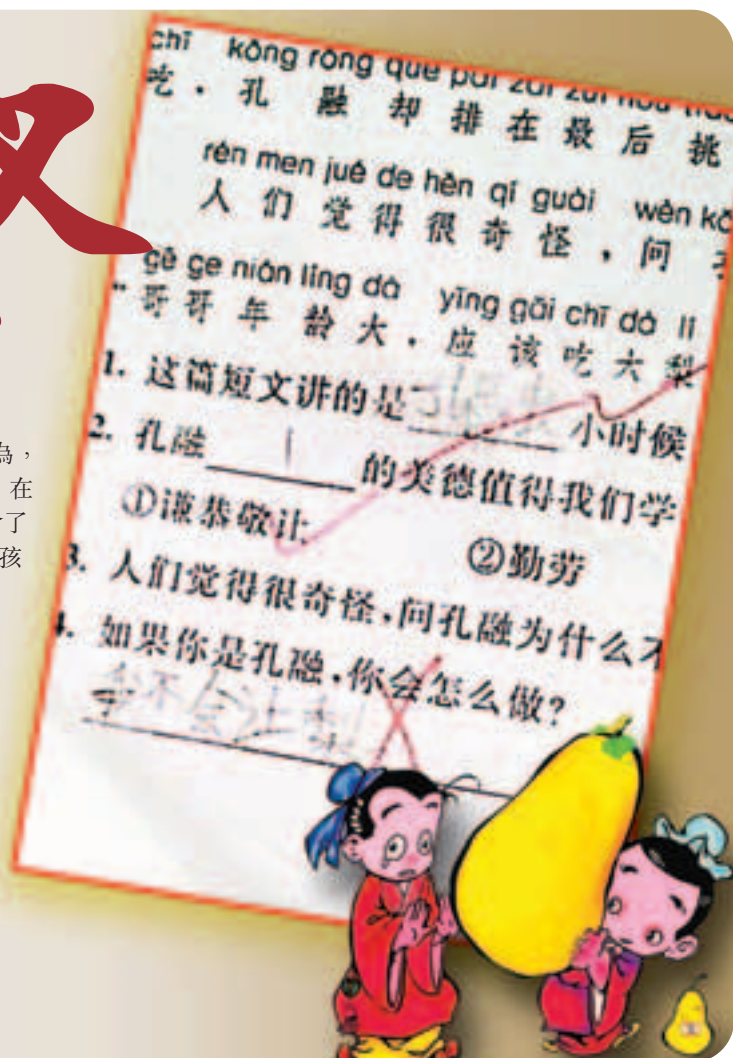 为，
在
了
孩
chī kōng róng què pái zài zuì hòu
吃．孔 融 却 排 在 最 后 挑
rén men jué de hěn qí guài wèn kǒ
人 们 觉 得 很 奇 怪 ，问
gē ge nián líng dà yīng gāi chī dà lí
"哥 哥 年 龄 大．应 该 吃 大 梨
1. 这篇短文讲的是 小时候
2. 孔融 1 的美德值得我们学
①谦恭敬让 ②勤劳
3. 人们觉得很奇怪，问孔融为什么不
4. 如果你是孔融，你会怎么做？
我不会让梨